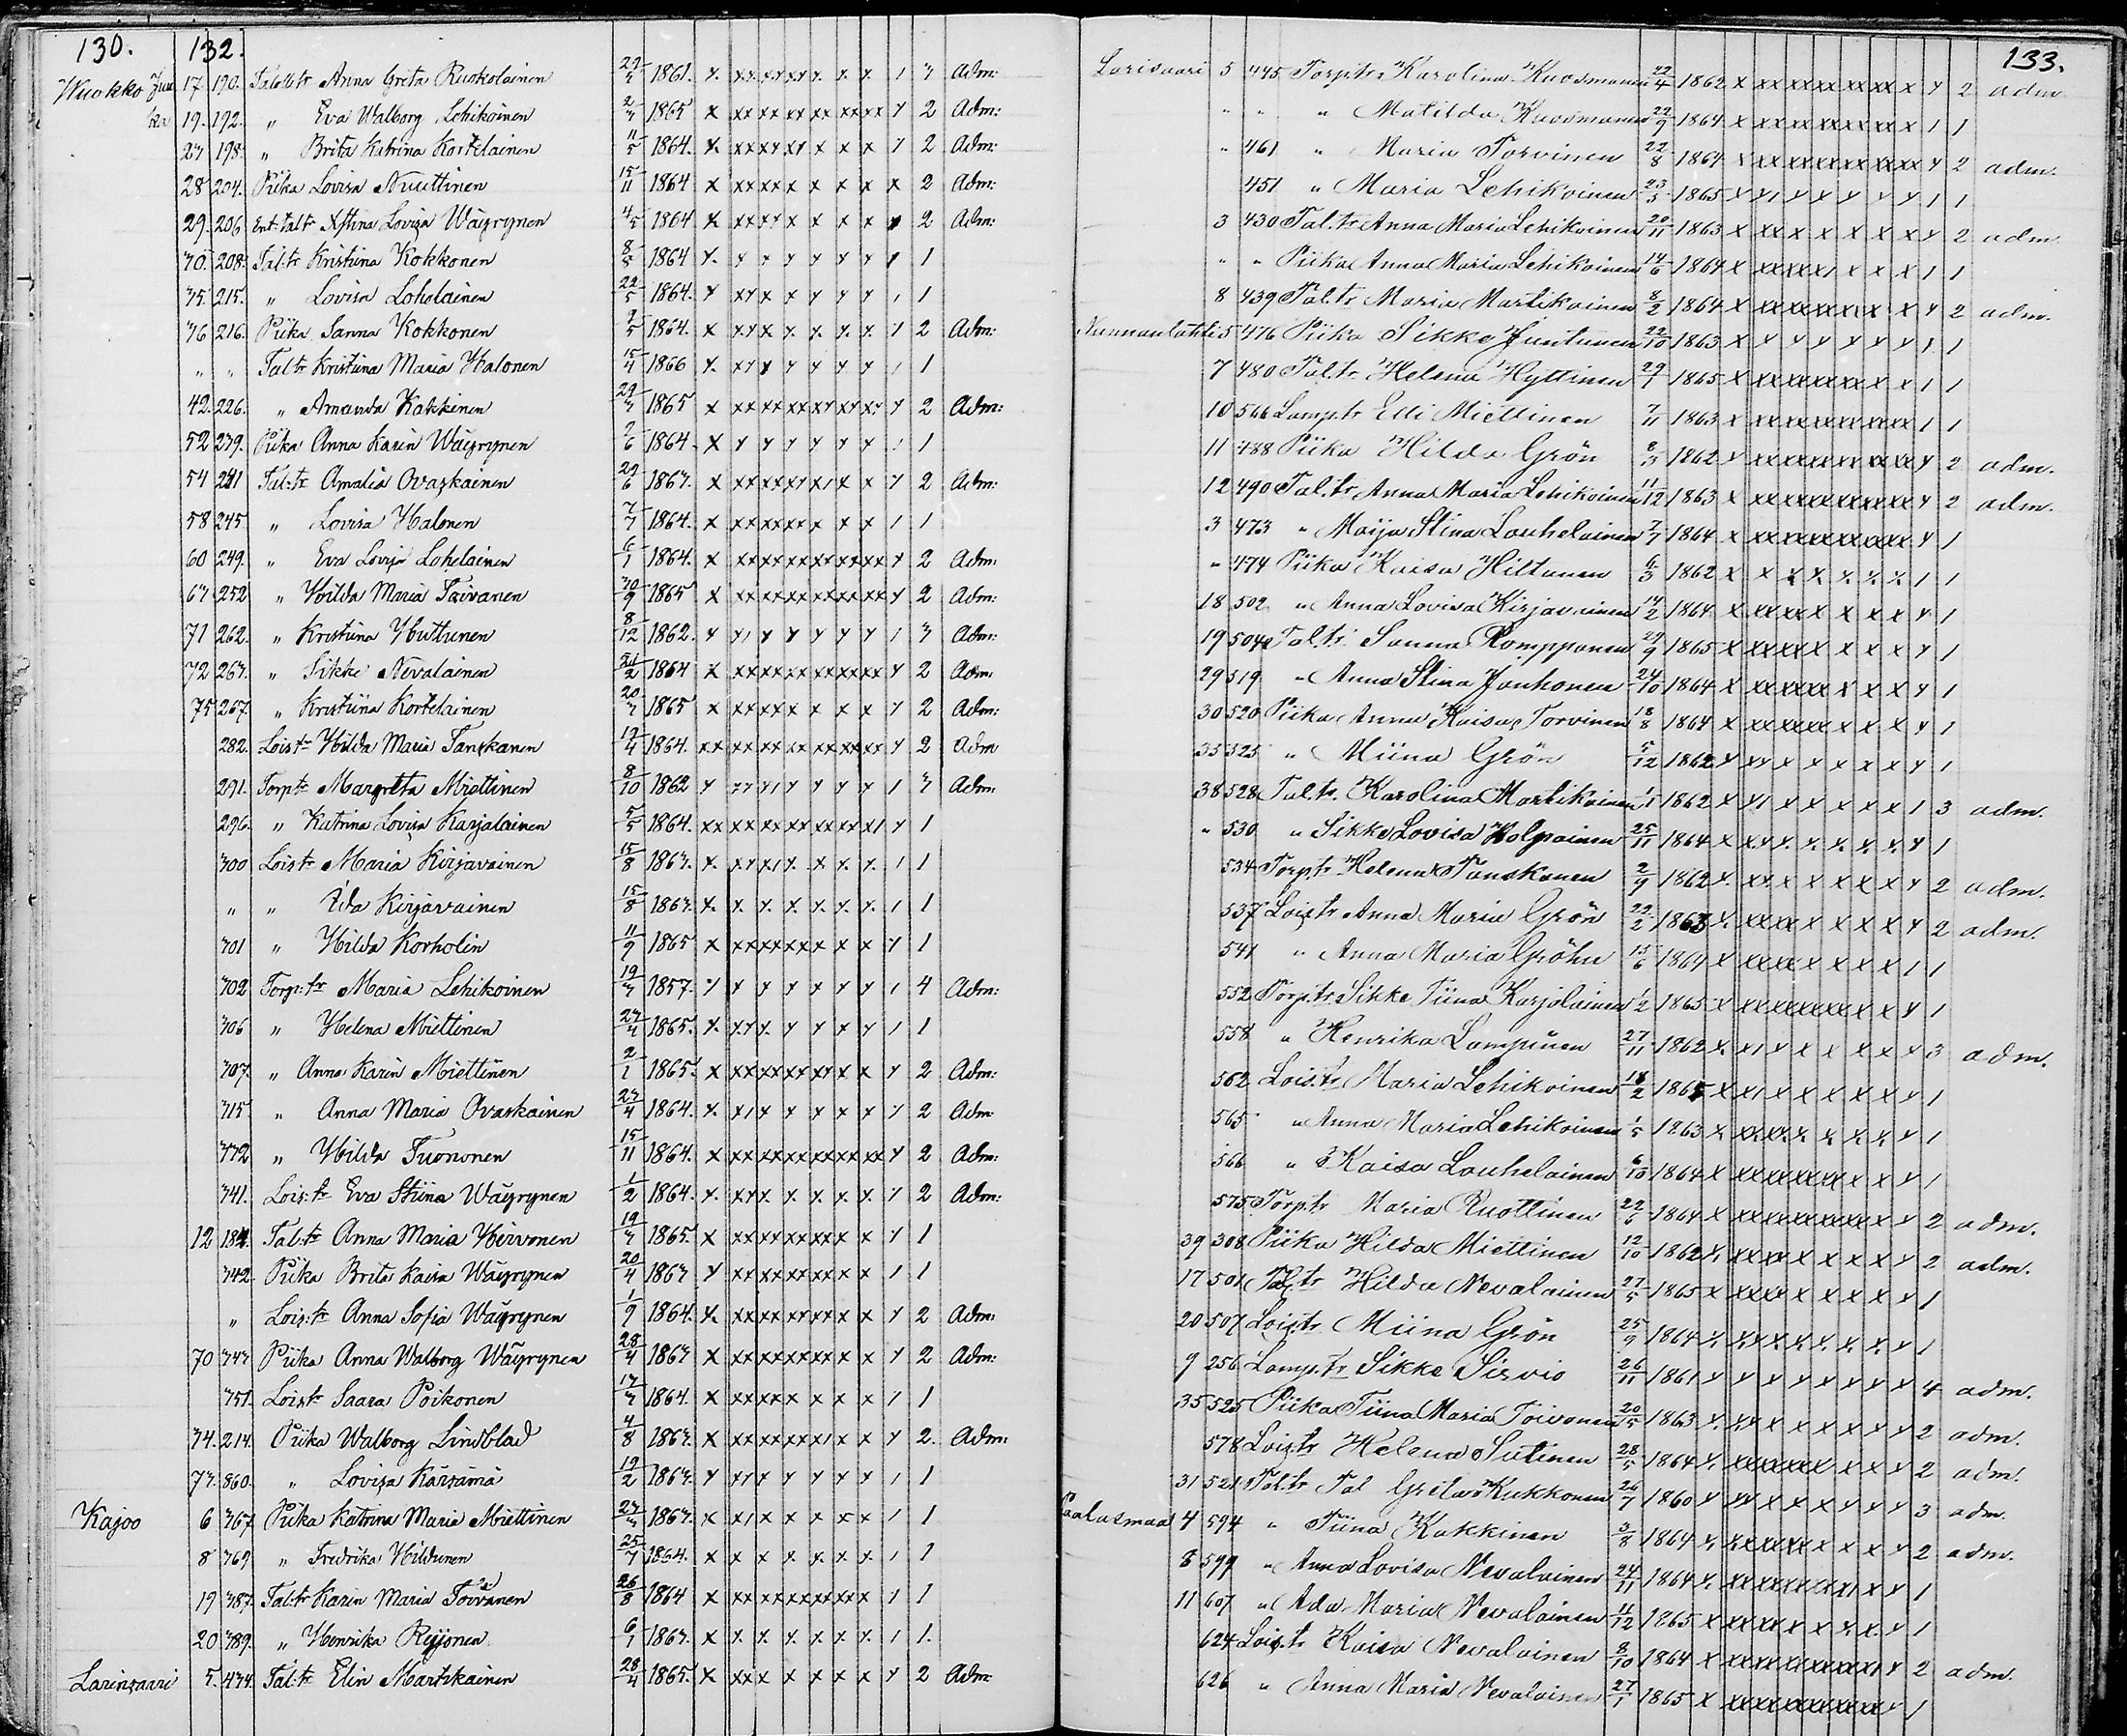 130. 132.
Wuokko 17. 190. Tal:tr Anna Greta Ruokolainen 1861. x. xx xx xx x. x. x. 1 3 Adm:
19. 192. " Eva Walborg Lehikoinen 1865 x xx xx xx xx xx x y 2 Adm:
23 198. " Brita Katrina Kortelainen 11/5 1864. x. xx xx xx x x x y 2 Adm:
28 204. Piika Lovisa Nuuttinen 15/11 1864 x xx xx x x x x x 2 Adm:
29. 206 Ent. talr Stina Lovisa Wäyrynen 4/5 1864 x xx xx x x x x 1 2 Adm:
30. 208. Tal:tr Kristiina Kokkonen 8/8 1864 x. x x x x x x 1 1
35. 215. " Lovisa Loholainen 22/5 1864. x xx x x x x x 1 1
36 216. Piika Sanna Kokkonen 1864. x xx x x. x. x. x. y 2 Adm:
" " Tal:tr Kristiina Maria Halonen 15/4 1866 x. xx x x x x x 1 1
42. 226. " Amanda Kakkinen 29/3 1865 x xx xx xx xx xx y 2 Adm:
52 239. Piika Anna Karin Wäyrynen 1864. x x x x x x x 1 1
54 241 Tal:tr Amalia Ovaskainen 29/6 1863. x xx xx xx x x y 2 Adm:
58 245. " Lovisa Halonen 7/7 1864. x xx xx xx x x x 1 1
60 249. " Eva Lovisa Lohelainen 6/1 1864. x xx xx xx xx xx xx y 2 Adm:
63 252 " Hilda Maria Taivanen 30/9 1865 x xx xx xx xx xx xx y 2 Adm:
71 262. " Kristiina Huttunen 8/12 1862. x x1 x x x x x 1 3 Adm:
72 263. " Sikke Nevalainen 1864 x xx xx xx xx xx xx y 2 Adm:
75 267. " Kristiina Kortelainen 20/3 1865 x xx xx x x x x y 2 Adm:
282. Lois:tr Hilda Maria Tanskanen 1864. xx xx xx xx xx xx xx y 2 Adm
291. Torp:tr Margreta Miettinen 8/10 1862 x xx x1 x x x x 1 3 Adm:
296. " Katrina Lovisa Karjalainen 1864. xx xx xx xx xx xx x1 y 1
300 Lois:tr Maria Kirjavainen 15/8 1863. x. xx x1 x. x. x. x. 1 1
" " Ida Kirjavainen 15/8 1863. x. x. x. x. x. x. x. 1 1
301 " Hilda Korholin 11/9 1865 x xx xx xx x x x y 1
302 Torp:tr Maria Lehikoinen 19/3 1857. x x x x x x x 1 4 Adm:
306 " Helena Miettinen 1865. x. xx x. x x x x 1 1
307. " Anna Karin Miettinen 2/1 1865. x xx xx xx xx x x y 2 Adm:
315 " Anna Maria Ovaskainen 23/4 1864. x. x1 x x x x x y 2 Adm
332 " Hilda Tuononen 15/11 1864. x xx xx xx xx xx xx y 2 Adm:
341. Lois:tr Eva Stiina Wäyrynen 1/2 1864. x. xx x. x x x x. y 2 Adm:
12 184. Tal:tr Anna Maria Hirvonen 19/3 1865. x xx xx xx xx x x y 1
342. Piika Brita Kaisa Wäyrynen 20/4 1863 x xx xx xx x x x 1 1
" Lois:tr Anna Sofia Wäyrynen 1/9 1864. x. xx xx xx xx x x y 2 Adm:
70 343 Piika Anna Walborg Wäyrynen 28/4 1863 x xx xx xx xx x x y 2 Adm:
351. Lois:tr Saara Poikonen 1864. x xx xx x x x x 1 1
34. 214. Piika Walborg Lindblad 4/8 1863. x xx xx xx x1 x x y 2. Adm:
73. 860. " Lovisa Kärsämä 19/2 1863. x x1 x x x x x 1 1
Kajoo 6 367 Piika Katrina Maria Miettinen 1863. x x1 x x x x x 1 1
8 369 " Fredrika Hildunen 25/7 1864. x x x x. x. x. x. 1 1
19 387. Tal:tr Karin Maria Toivanen 26/8 1864 x xx xx xx xx xx x 1 1
20 389. " Henrika Reijonen 6/1 1863. x x. x. x. x. x. x. 1 1.
Larinsaari 5. 434. Tal:tr Elin Martikainen 28/4 1865. x xx x x x x x x y 2 Adm:
133.
Larisaari 5 445 Torp:tr Karolina Kuosmanen 22/4 1862 x xx xx xx xx xx x y 2 adm
" " " Matilda Kuosmanen 22/9 1864 x xx xx xx xx xx x 1 1
" 461 " Maria Torvinen 22/8 1864 x xx xx xx xx xx xx y 2 adm.
451 " Maria Lehikoinen 23/5 1865 x x1 x x x x x 1 1
3 430 Tal:tr Anna Maria Lehikoinen 20/11 1863 x xx x x x x x y 2 adm
" " Piika Anna Maria Lehikoinen 14/6 1864 x xx xx x1 x x x 1 1
8 439 Tal:tr Maria Martikainen 8/2 1864 x xx xx xx xx x x y 2 adm.
Nunnanlahti 5 476 Piika Sikke Juutunen 22/10 1863 x x x x x x x 1 1
7 480 Tal:tr Helena Hyttinen 29/1 1865 x xx xx xx xx x x 1 1
10 566 Lamp:tr Elli Miettinen 7/11 1863 x xx xx xx xx xx xx 1 1
11 488 Piika Hilda Grön 1862 x xx xx xx xx xx xx y 2 adm.
12 490 Tal:tr Anna Maria Lehikoinen 11/12 1863 x xx xx xx xx xx x y 2 adm.
3 473 " Maija Stina Louhelainen 7/7 1864 x xx xx xx xx xx xx y 1
" 474 Piika Kaisa Hiltunen 6/3 1862 x x x x. x. x. x. 1 1
18 502 " Anna Lovisa Kirjavainen 14/2 1864 x xx xx x x x x y 1
19 504 Tal:tr Sanna Romppanen 29/9 1865 x xx xx x x x x y 1
29 519 " Anna Stina Jonhonen 24/10 1864 x xx xx xx x x x y 1
30 520 Piika Anna Kaisa Torvinen 18/8 1864 x xx xx xx x x x y 1
35 525 " Miina Grön 5/12 1862 x xx x x x x x y 1
38 528 Tal:tr. Karolina Martikainen 1862 x x1 x x x x x 1 3 adm.
" 530 " Sikke Lovisa Holpainen 25/11 1864 x xx x. x. x. x. x. y 1
534 Torp:tr Helena Tanskanen 2/9 1862 x. xx. x x x x x y 2 adm.
537 Lois:tr Anna Maria Grön 22/2 1863 x. xx xx x x x x y 2 adm.
541 " Anna Maria Gröhn 15/6 1864 x xx xx x x x x 1 1
552 Torp:tr Sikke Tiina Karjalainen 1/2 1865 x xx xx xx xx x x y 1
558 " Henrika Lampinen 27/11 1862 x. x1 x x x x x y 3 adm.
562 Lois:tr Maria Lehikoinen 18/2 1865 x x1 x x x x x y 1
565 " Anna Maria Lehikoinen 1/5 1863 x. xx. xx. x. x. x. x. y 1
566 " Kaisa Louhelainen 6/10 1864 x xx xx xx xx x x y 1
575 Torp:tr Maria Ruottinen 1864 x xx xx xx xx xx x y 2 adm.
39 308 Piika Hilda Miettinen 12/10 1862 x. xx xx x x x x y 2 adm.
17 501 Tal:tr Hilda Nevalainen 27/5 1865 x xx xx x x x x y 1
20 507 Lois:tr Miina Grön 25/9 1864 x. xx x. x. x. x. x. y 1
9 256 Lamp:tr Sikke Sirvio 26/11 1861 x x x x x x x y 4 adm.
35 525 Piika Tiina Maria Toivonen 20/5 1863 x. xx x x x x x y 2 adm.
578 Lois:tr Helena Sutinen 28/5 1864 x. xx xx xx x x x y 2 adm.
31 521 Tal:tr Greta Kukkonen 26/7 1860 x xx x x x x x y 3 adm.
Paalasmaa 4 594 " Tiina Kakkinen 3/8 1864 x. xx xx xx x x x y 2 adm.
8 599 " Anna Lovisa Nevalainen 24/11 1864 x. xx xx xx xx x1 x y 1
11 607 " Ada Maria Nevalainen 11/12 1865 x xx xx xx x x. x. y 1
624 Lois:tr Kaisa Nevalainen 8/10 1864 x xx xx xx xx xx x1 y 2 adm.
626 " Anna Maria Nevalainen 27/1 1865 x xx xx xx xx xx xx y 1